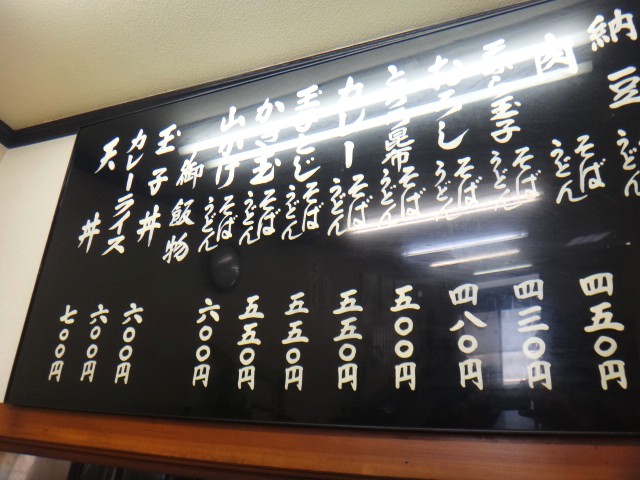 納豆 そば うどん
肉 そば うどん 四五〇円
玉子 そば うどん 四三〇円
おろし そば うどん 四八〇円
とろろ昆布 そば うどん 五〇〇円
カレー そば うどん 五五〇円
玉子とじ そば うどん 五五〇円
かき玉 そば うどん 五五〇円
山かけ そば うどん 六〇〇円
御飯物
玉子丼 六〇〇円
カレーライス 六〇〇円
天丼 七〇〇円